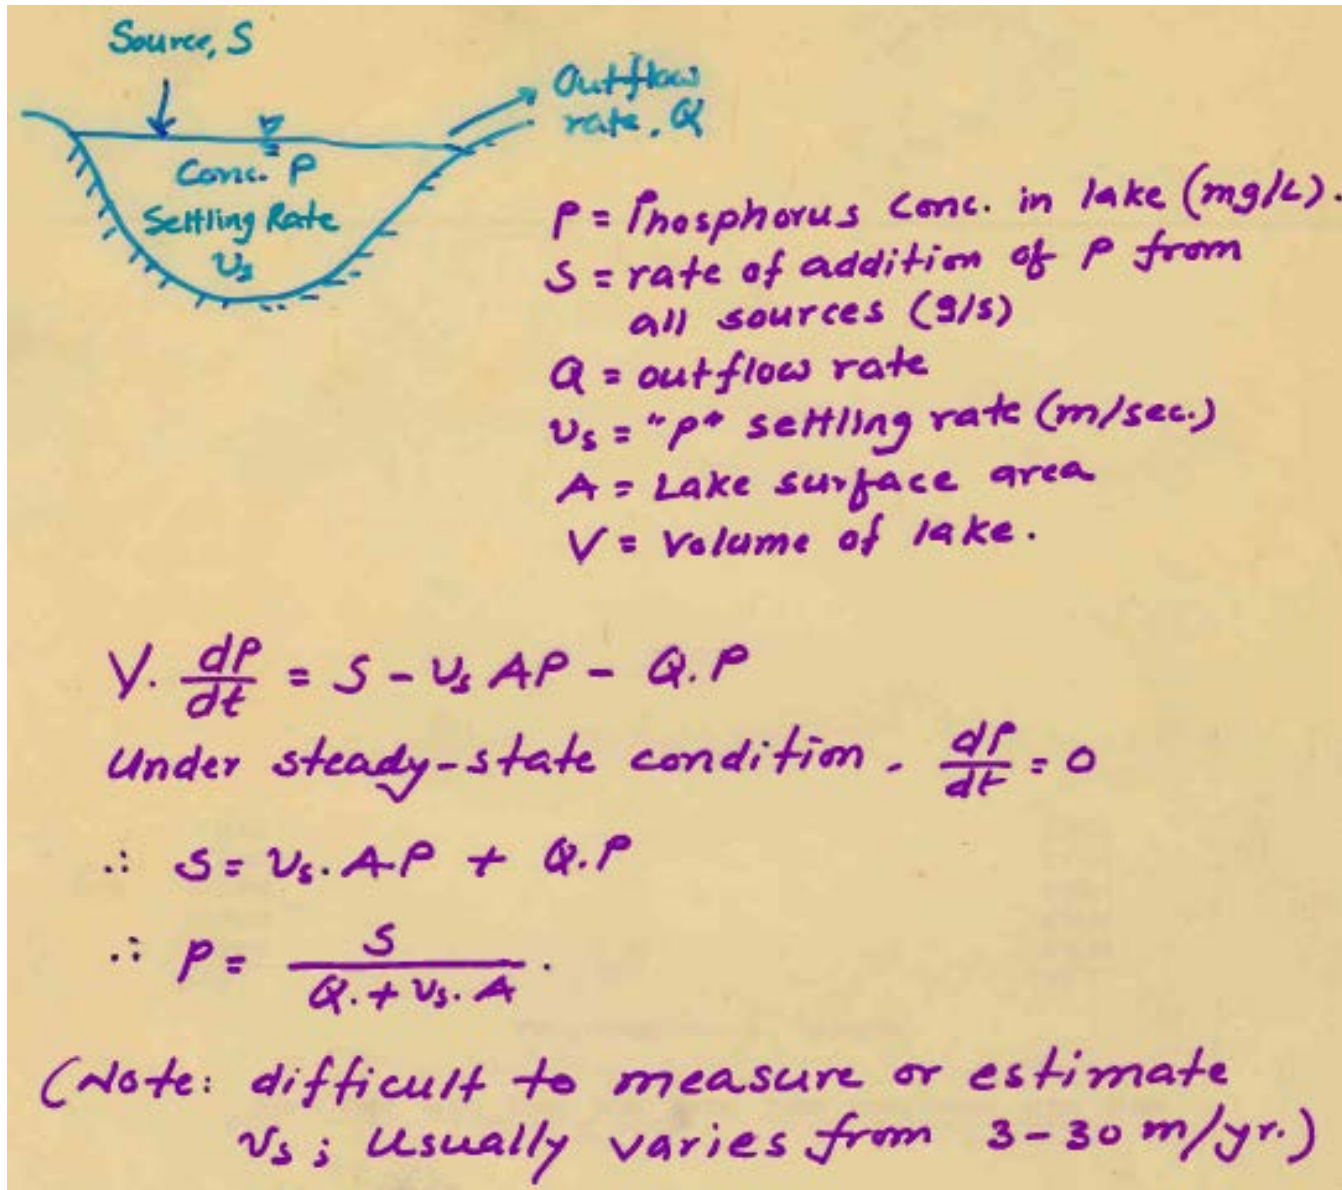 Source, S
Outflow
rate, Q
Conc. P
Settling Rate
υs
P = Phosphorus Conc. in lake (mg/L).
S = rate of addition of P from
all sources (g/s)
Q = outflow rate
υs = "P" settling rate (m/sec.)
A = Lake surface area
V = Volume of lake.
V. dP/dt = S - υs AP - Q.P
Under steady-state condition, dP/dt = 0
∴ S = υs. A.P + Q.P
∴ P = S / (Q. + υs. A).
(Note: difficult to measure or estimate
υs; Usually varies from 3-30 m/yr.)